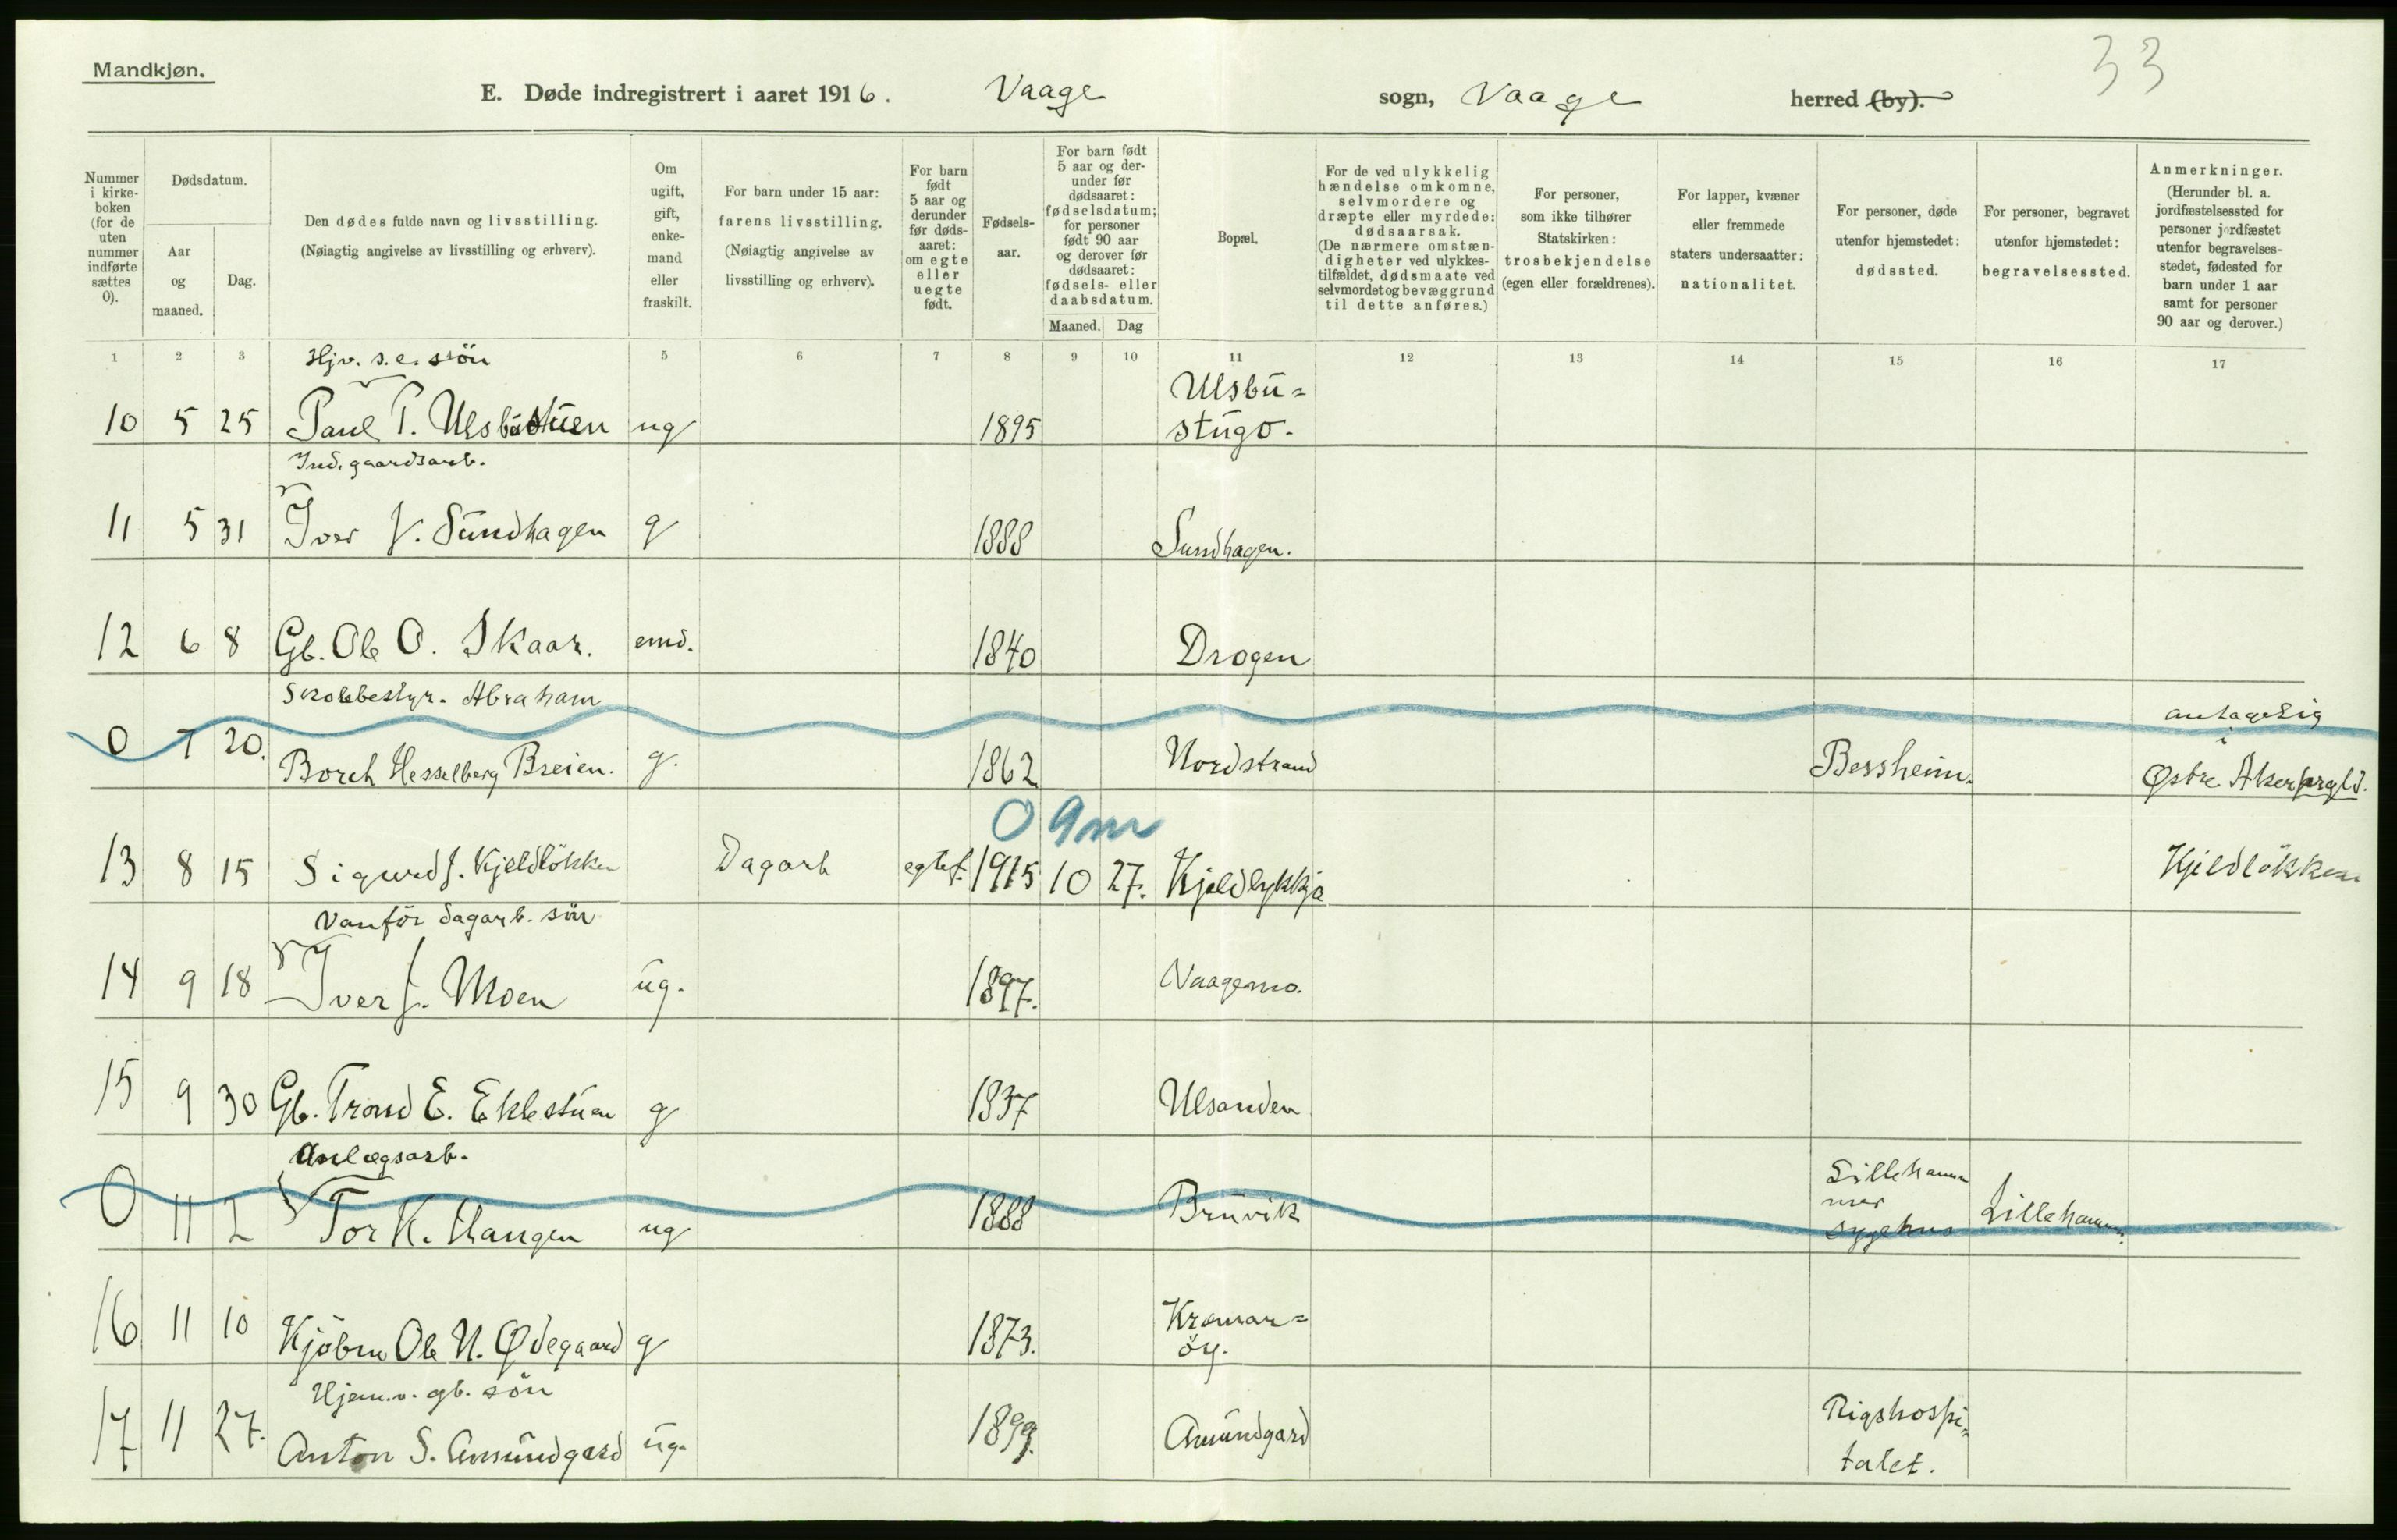 33
Mandkjøn.
E. Døde indregistrert i aaret 1916. Vaage sogn, Vaage herred (by).
Nummer i kirke-boken (for de uten nummer indførte sættes 0).
Dødsdatum.
Aar og maaned.
Dag.
Den dødes fulde navn og livsstilling.
(Nøiagtig angivelse av livsstilling og erhverv).
Om ugift, gift, enke-mand eller fraskilt.
For barn under 15 aar: farens livsstilling.
(Nøiagtig angivelse av livsstilling og erhverv).
For barn født 5 aar og derunder før døds-aaret: om egte eller uegte født.
Fødsels-aar.
For barn født 5 aar og der-under før dødsaaret: fødselsdatum; for personer født 90 aar og derover før dødsaaret: fødsels- eller daabsdatum.
Maaned. Dag
Bopæl.
For de ved ulykkelig hændelse omkomne, selvmordere og dræpte eller myrdede: dødsaarsak.
(De nærmere omstæn-digheter ved ulykkes-tilfældet, dødsmaate ved selvmordet og bevæggrund til dette anføres.)
For personer, som ikke tilhører Statskirken: trosbekjendelse (egen eller forældrenes).
For lapper, kvæner eller fremmede staters undersaatter: nationalitet.
For personer, døde utenfor hjemstedet: dødssted.
For personer, begravet utenfor hjemstedet: begravelsessted.
Anmerkninger.
(Herunder bl. a. jordfæstelsessted for personer jordfæstet utenfor begravelses-stedet, fødested for barn under 1 aar samt for personer 90 aar og derover.)
1 2 3 5 6 7 8 9 10 11 12 13 14 15 16 17
Hjv. s.e. søn
Ulsbu=
10 5 25 Paul P. Ulsbustuen ug 1895 stugo.
Ind. gaardsarb.
11 5 31 Iver J. Sundhagen g 1888 Sundhagen.
12 6 8 Gb. Ole O. Skaar. emd. 1840 Drogen
Skolebestyr. Abraham
antagelig i
0 7 20. Borch Hesselberg Breien. g. 1862 Nordstrand Bessheim. Østre Aker prgld.
0 9m
13 8 15 Sigurd J. Kjeldløkken Dagarb egtef. 1915 10 27. Kjeldlykkja Kjeldløkken
Vanfør dagarb. søn
14 9 18 Iver J. Moen ug. 1897. Vaagemo.
15 9 30 Gb. Trond E. Eklestuen g 1837 Ulsanden
Anlægsarb.
Lilleham
mer
0 11 2 Tor K. Haugen ug 1888 Bruvik sygehus Lillehammer.
Kramar=
16 11 10 Kjøbm Ole N. Ødegaard g 1873. øy.
Hjem.v. gb. søn
Rigshospi=
17 11 27. Anton S. Amundgard ug. 1899. Amundgard
talet.